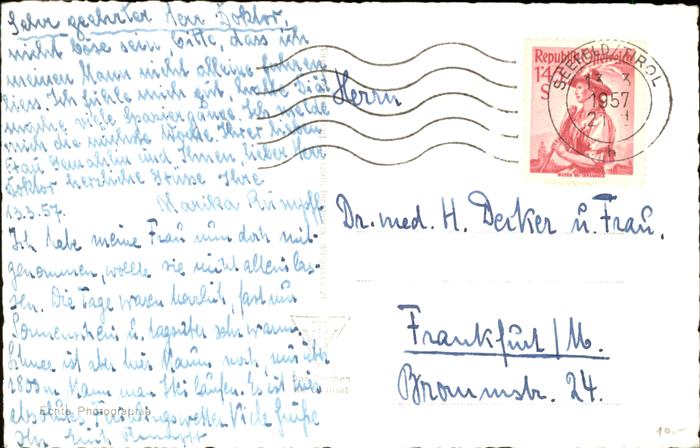 Sehr geehrter Herr Doktor,
nicht böse sein bitte, dass ich
meinen Mann nicht alleine fahren
liess. Ich fühle mich gut, halte Diät
mache viele Spaziergänge. Ich melde
mich die nächste Woche. Ihrer lieben
Frau Gemahlin und Ihnen, lieber Herr
Doktor herzliche Grüsse Ihre
13.3.57. Marika Rumpff
Ich habe meine Frau nun doch mit-
genommen, wollte sie nicht allein las-
sen. Die Tage waren herrlich, fast nur
Sonnenschein u. tagsüber sehr warm.
Schnee ist aber hier kaum noch, nur über
1800 m kann man Ski laufen. Es ist hier
Frühlingswetter Viele Grüße
Ihr
Echte Photographie
Republik Österreich
1.45
S
SEEFELD/TIROL
13. 3.
1957
Herrn
Dr. med. H. Decker u. Frau.
Frankfurt/M.
Brommstr. 24.
10.-